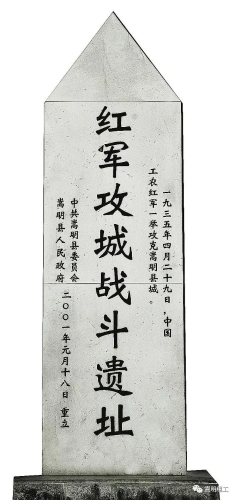 一九三五年四月二十九日，中国
工农红军一举攻克嵩明县城。
红军攻城战斗遗址
中共嵩明县委员会
嵩明县人民政府
二〇〇一年元月十八日 重立
嵩明红工